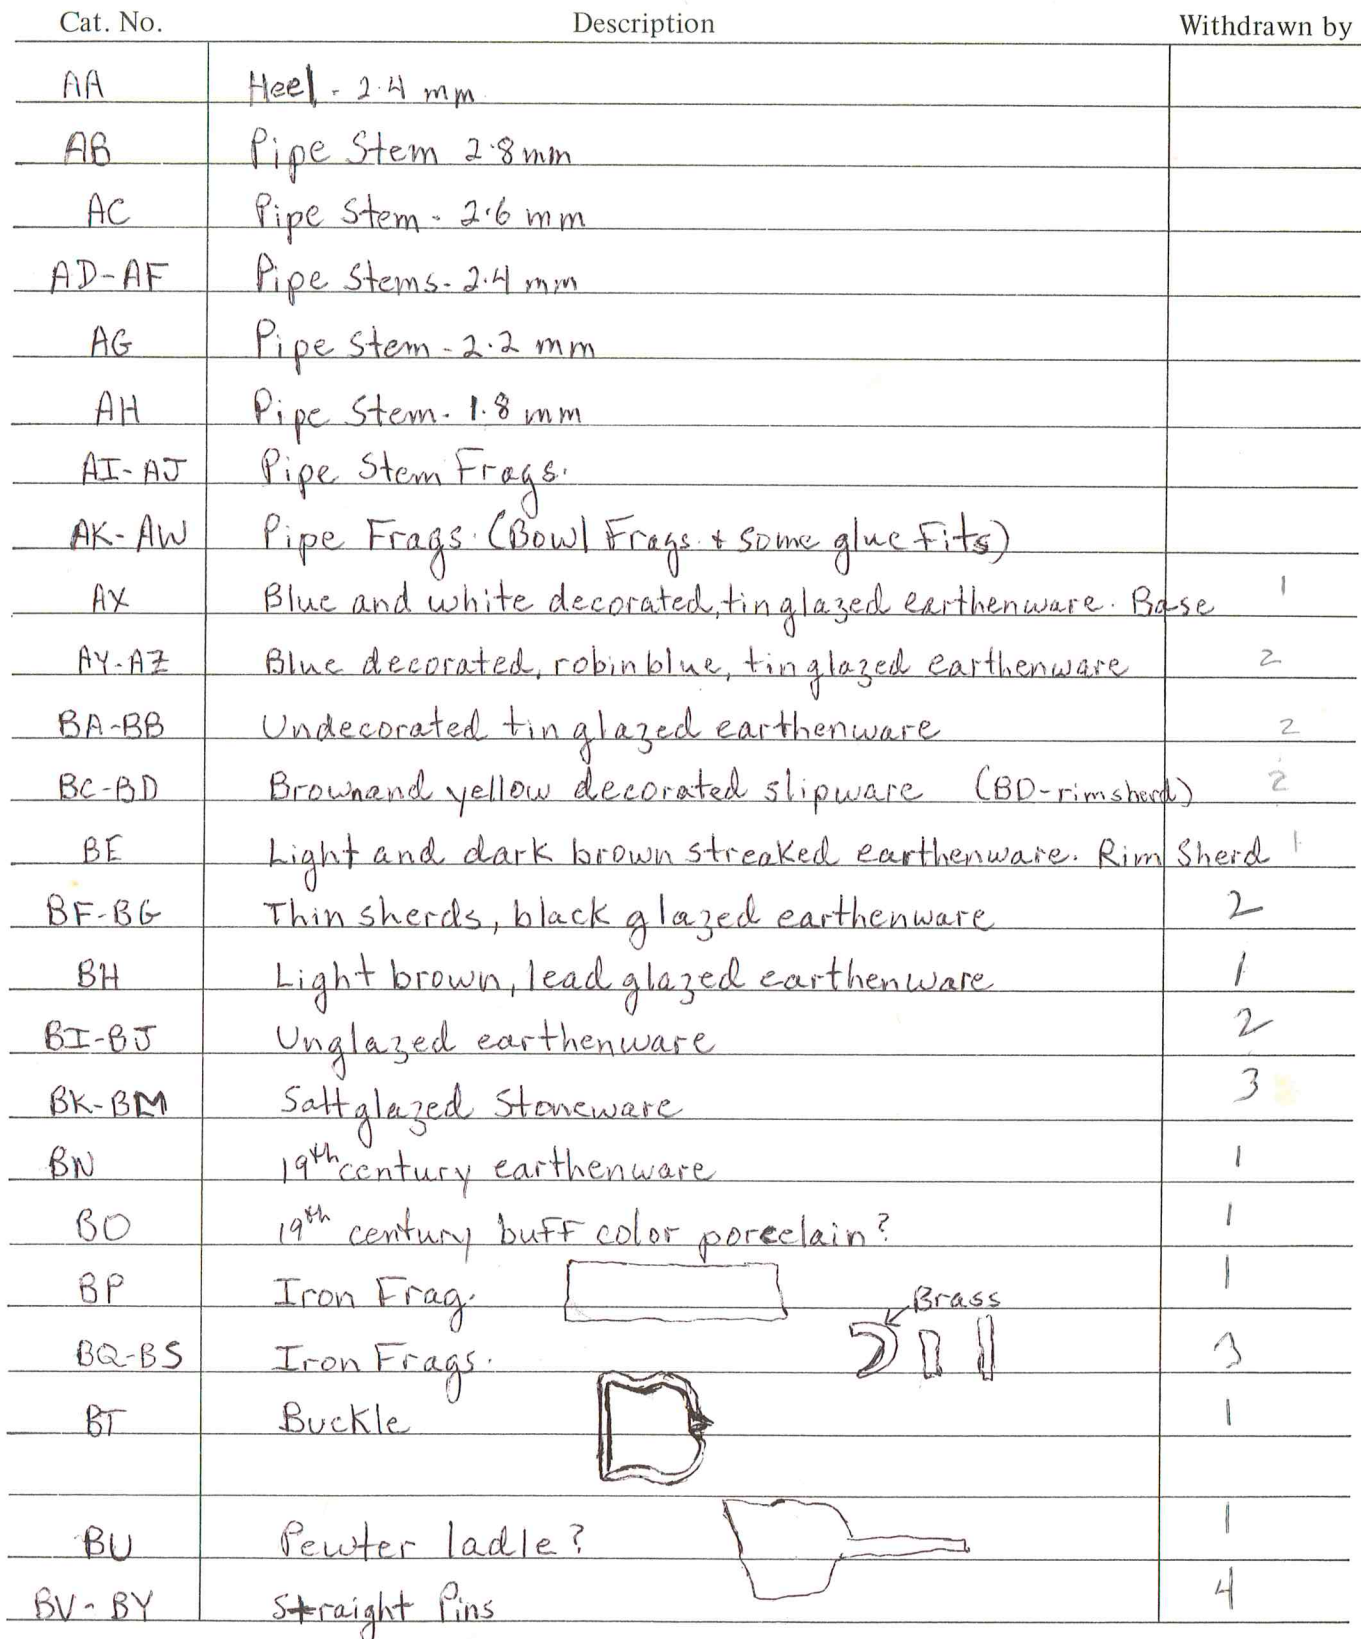 Cat. No. Description Withdrawn by
AA Heel - 2.4 mm
AB Pipe Stem 2.8mm
AC Pipe Stem - 2.6 mm
AD-AF Pipe Stems - 2.4 mm
AG Pipe Stem - 2.2 mm
AH Pipe Stem - 1.8 mm
AI-AJ Pipe Stem Frags.
AK-AW Pipe Frags. (Bowl Frags. + some glue Fits)
AX Blue and white decorated, tin glazed earthenware. Base 1
AY-AZ Blue decorated, robin blue, tin glazed earthenware 2
BA-BB Undecorated tin glazed earthenware 2
BC-BD Brown and yellow decorated slipware (BD-rimsherd) 2
BE Light and dark brown streaked earthenware. Rim Sherd 1
BF-BG Thin sherds, black glazed earthenware 2
BH Light brown, lead glazed earthenware 1
BI-BJ Unglazed earthenware 2
BK-BM Salt glazed Stoneware 3
BN 19th century earthenware 1
BO 19th century buff color porcelain? 1
BP Iron Frag. 1
Brass
BQ-BS Iron Frags. 3
BT Buckle 1
BU Pewter ladle? 1
BV-BY Straight Pins 4